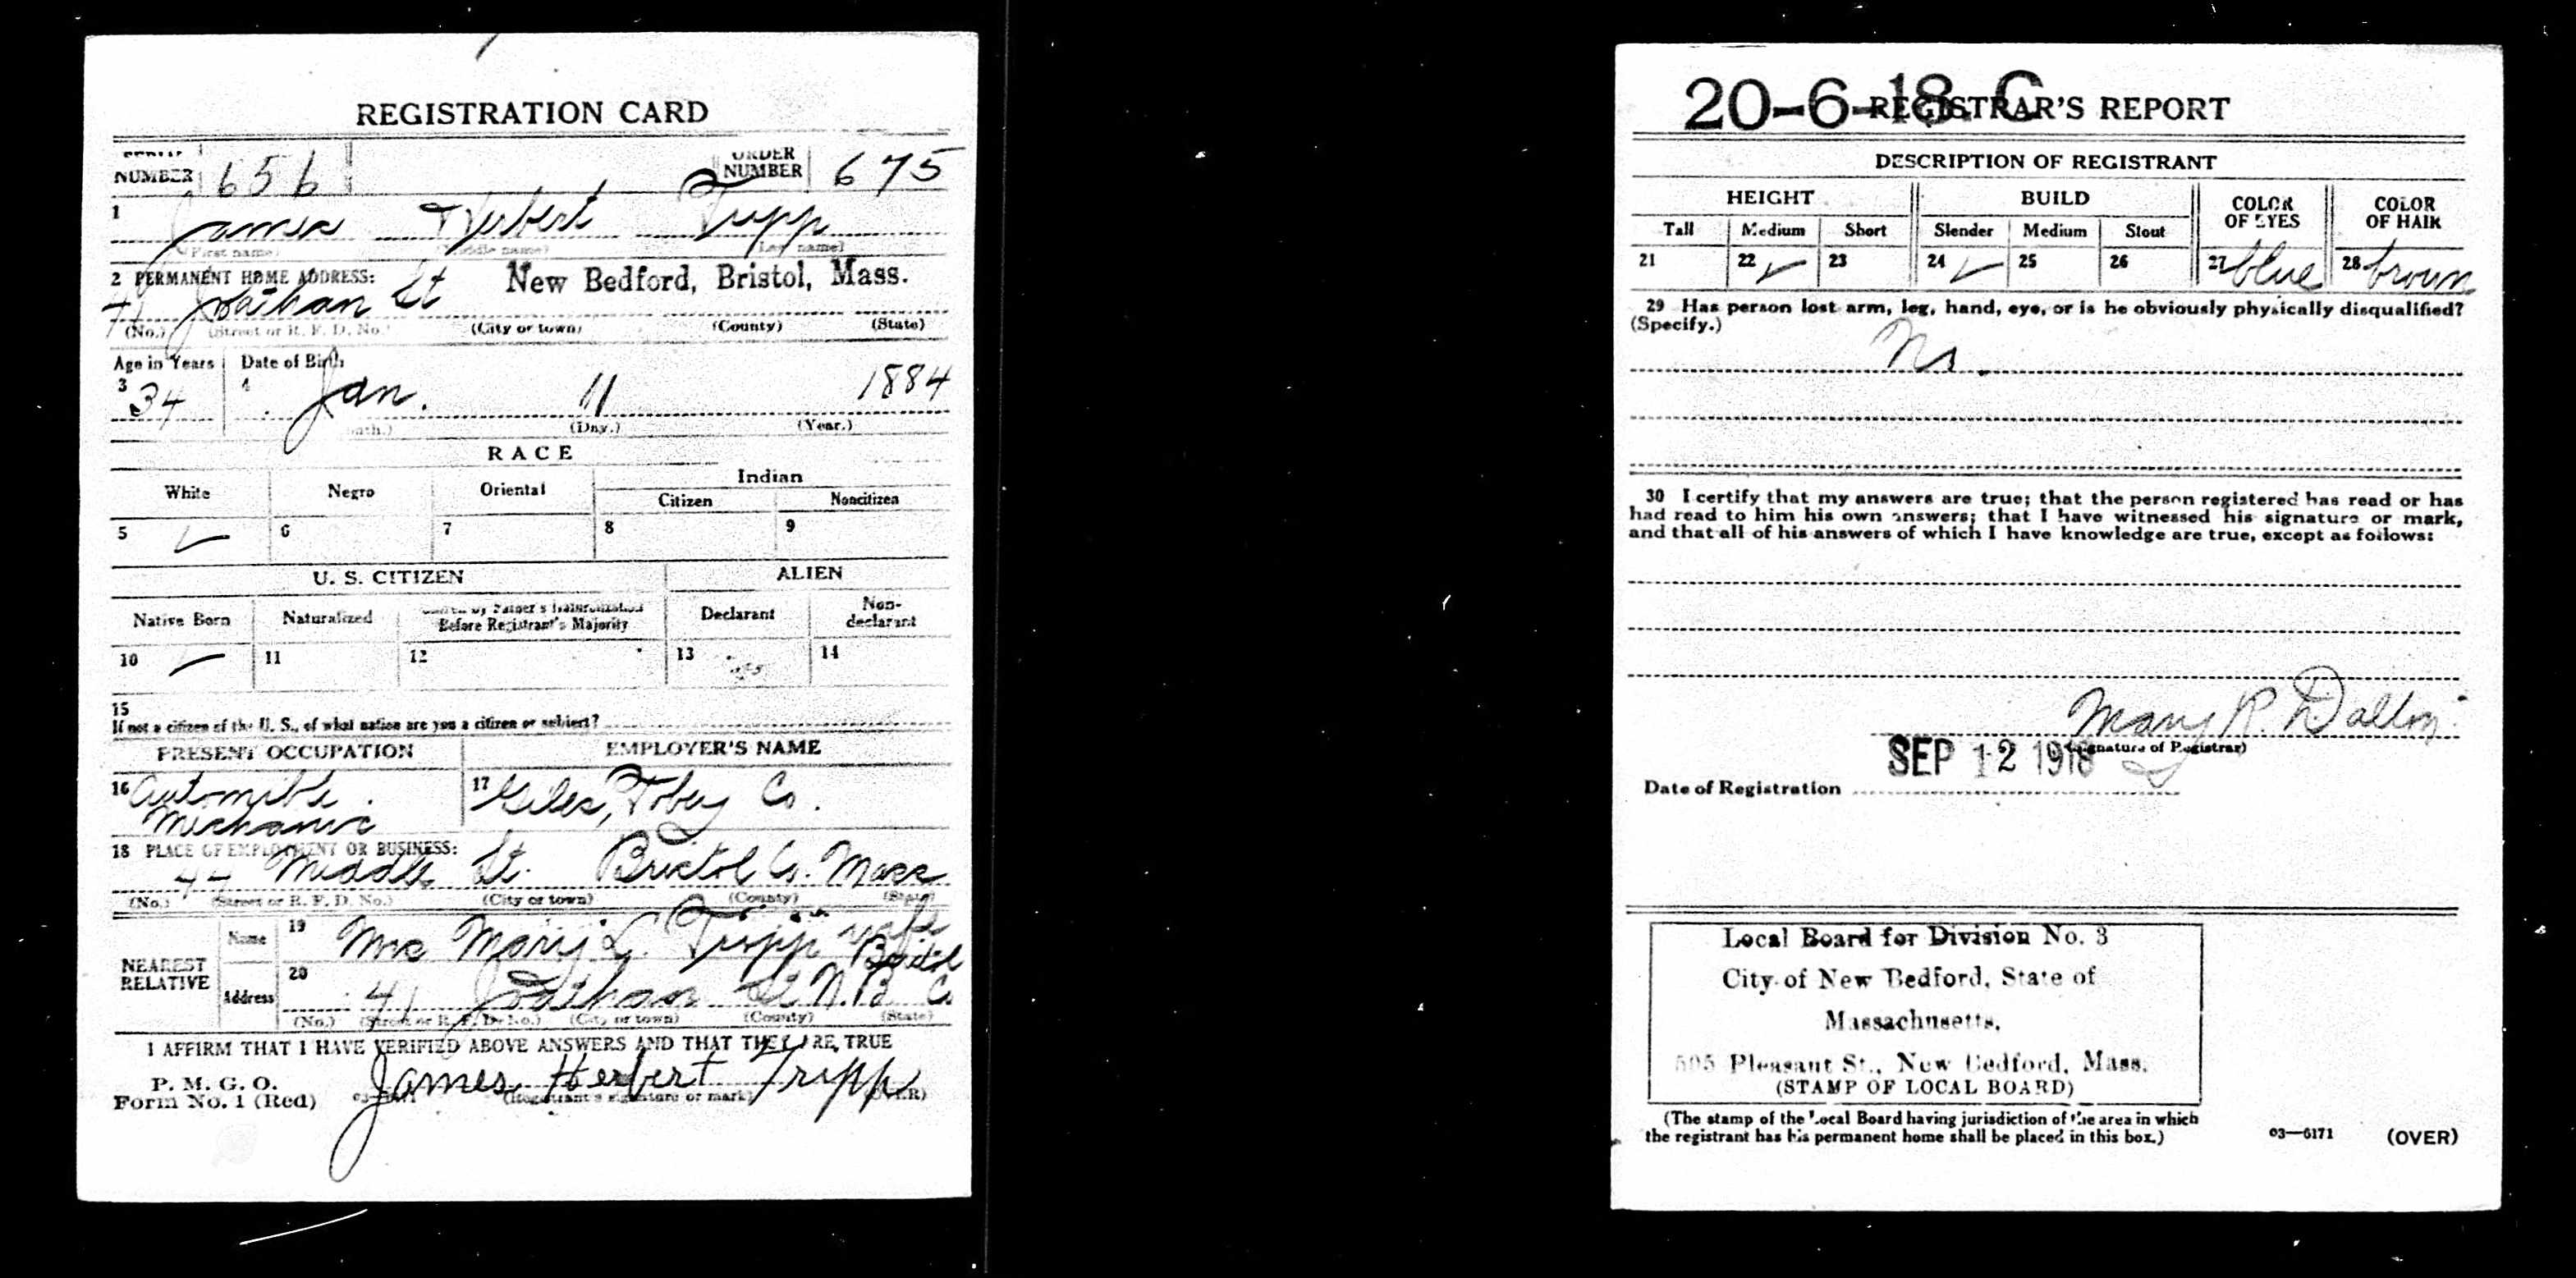 REGISTRATION CARD
SERIAL NUMBER 656 ORDER NUMBER 675
1 James Herbert Tripp
(First name) (Middle name) (Last name)
2 PERMANENT HOME ADDRESS:
41 Jonathan St New Bedford, Bristol, Mass.
(No.) (Street or R. F. D. No.) (City or town) (County) (State)
Age in Years Date of Birth
3 34 4 Jan. 11 1884
(Month.) (Day.) (Year.)
RACE
White Negro Oriental Indian
Citizen Noncitizen
5 ✓ 6 7 8 9
U. S. CITIZEN ALIEN
Native Born Naturalized Citizen by Father's Naturalization Before Registrant's Majority Declarant Non-declarant
10 ✓ 11 12 13 14
15
If not a citizen of the U. S., of what nation are you a citizen or subject?
PRESENT OCCUPATION EMPLOYER'S NAME
16 Automobile Mechanic 17 Giles, Tobey Co.
18 PLACE OF EMPLOYMENT OR BUSINESS:
Middle St. Bristol Co. Mass
(No.) (Street or R. F. D. No.) (City or town) (County) (State)
NEAREST RELATIVE
Name 19 Mrs Mary L. Tripp wife
Address 20 41 Jonathan St N.B. Bristol Co
(No.) (Street or R. F. D. No.) (City or town) (County) (State)
I AFFIRM THAT I HAVE VERIFIED ABOVE ANSWERS AND THAT THEY ARE TRUE
P. M. G. O.
Form No. 1 (Red) James Herbert Tripp
03—6171 (Registrant's signature or mark) (OVER)
20-6-18. C
REGISTRAR'S REPORT
DESCRIPTION OF REGISTRANT
HEIGHT BUILD COLOR OF EYES COLOR OF HAIR
Tall Medium Short Slender Medium Stout
21 22 ✓ 23 24 ✓ 25 26 27 blue 28 brown
29 Has person lost arm, leg, hand, eye, or is he obviously physically disqualified?
(Specify.)
No.
30 I certify that my answers are true; that the person registered has read or has
had read to him his own answers; that I have witnessed his signature or mark,
and that all of his answers of which I have knowledge are true, except as follows:
Mary R. Dalton
(Signature of Registrar)
Date of Registration SEP 12 1918
Local Board for Division No. 3
City of New Bedford, State of
Massachusetts,
505 Pleasant St., New Bedford, Mass.
(STAMP OF LOCAL BOARD)
(The stamp of the Local Board having jurisdiction of the area in which
the registrant has his permanent home shall be placed in this box.)
03—6171 (OVER)